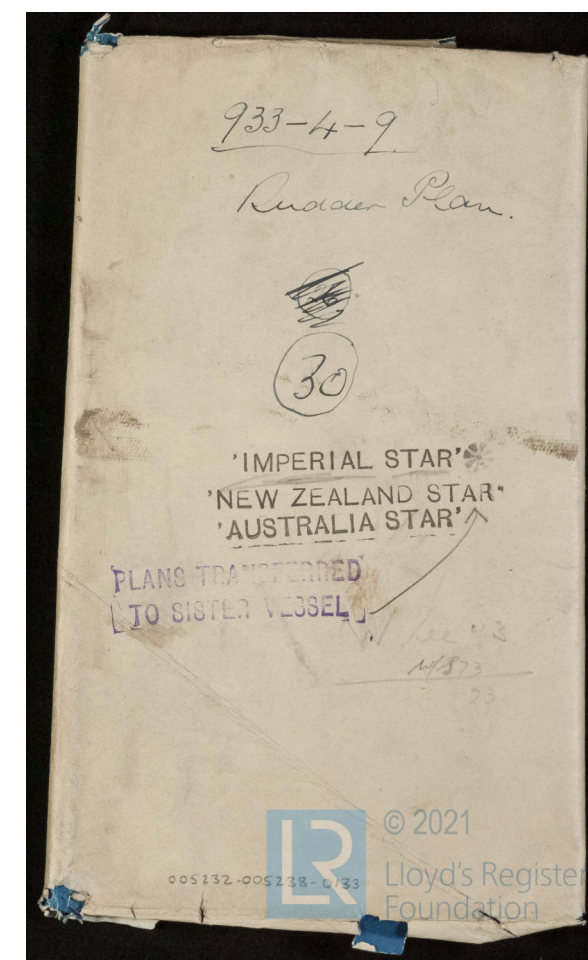 933-4-9.
Rudder Plan.
30
'IMPERIAL STAR'
'NEW ZEALAND STAR'
'AUSTRALIA STAR'
PLANS TRANSFERRED
TO SISTER VESSEL
see 43
005232-005238-0133
LR
© 2021
Lloyd's Register
Foundation